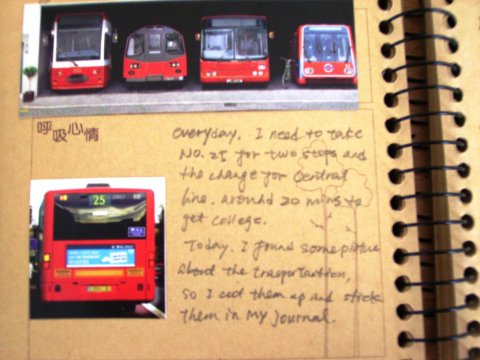 呼吸心情
everyday. I need to take
NO. 25 for two stops and
the change for Central
line. around 20 mins to
get college.
Today. I found some picture
about the trasportation,
so I cut them up and stick
them in my journal.
25